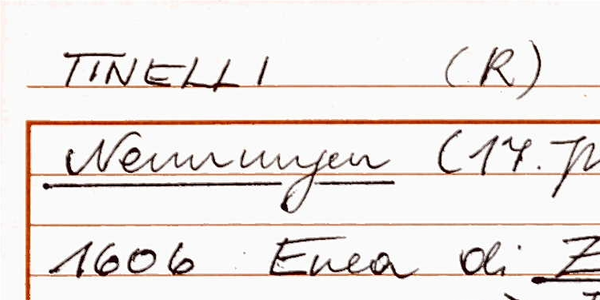 TINELLI (R)
Nennungen (17. J
1606 Enea di Z